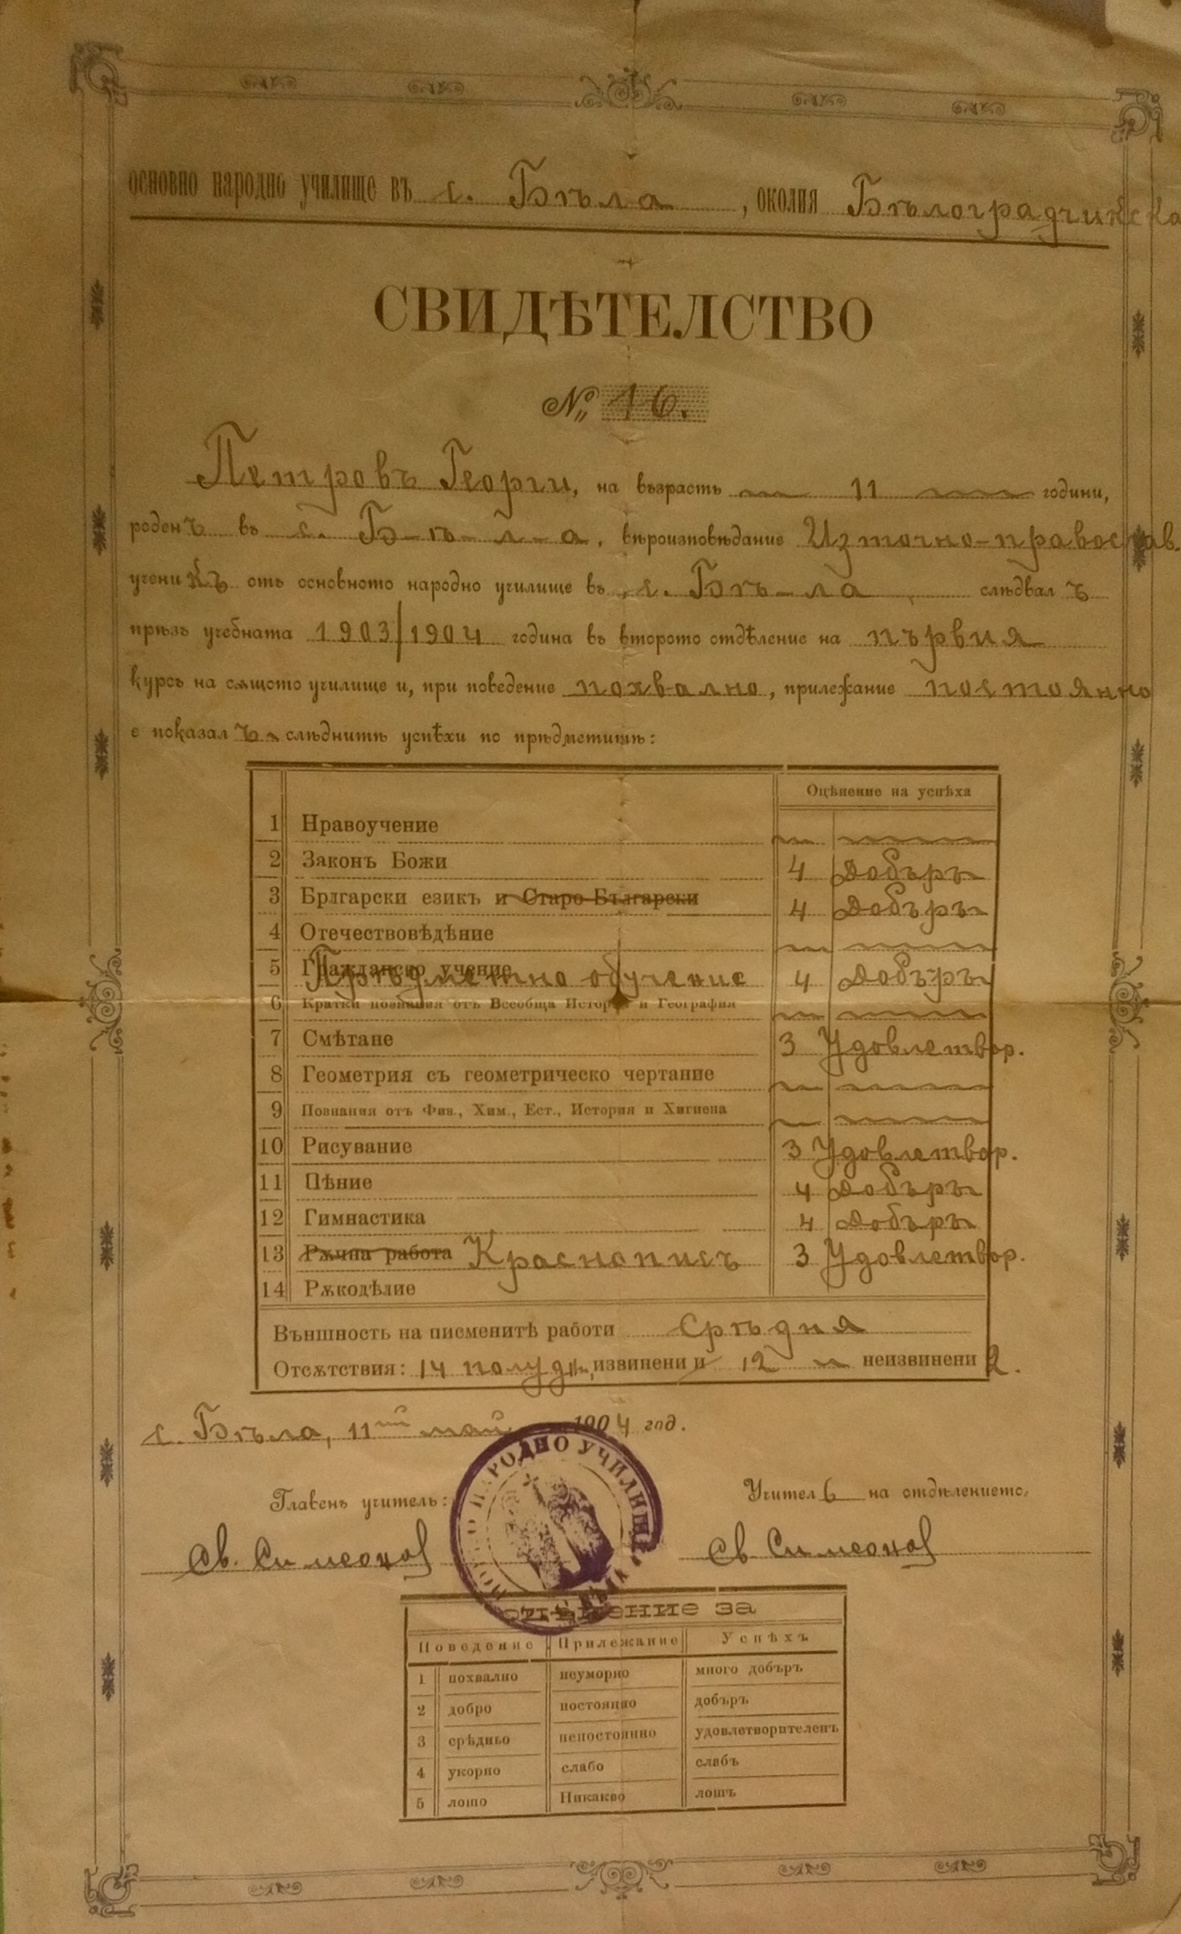 основно народно училище въ с. Бѣла, околия Бѣлоградчинска
СВИДѢТЕЛСТВО
№ 16.
Петровъ Георги, на възрасть 11 години,
роденъ въ с. Бѣла, вѣроизповѣдание Източно-православ.
ученикъ отъ основното народно училище въ с. Бѣ-ла слѣдвалъ
прѣзъ учебната 1903/1904 година въ второто отдѣление на първия
курсъ на сѫщото училище и, при поведение похвално, прилежание постоянно
е показалъ слѣднитѣ успѣхи по прѣдметитѣ:
Оцѣнение на успѣха
1 Нравоучение
2 Законъ Божи 4 Добъръ
3 Брлгарски езикъ и Старо-Български 4 Добъръ
4 Отечествовѣдѣние
5 Гражданско учение Прѣдметно обучение 4 Добъръ
6 Кратки познания отъ Всеобща История и География
7 Смѣтане 3 Удовлетвор.
8 Геометрия съ геометрическо чертание
9 Познания отъ Физ., Хим., Ест., История и Хигиена
10 Рисувание 3 Удовлетвор.
11 Пѣние 4 Добъръ
12 Гимнастика 4 Добъръ
13 Рѫчна работа Краснописъ 3 Удовлетвор.
14 Рѫкодѣлие
Външность на писменитѣ работи Срѣдня
Отсѫтствия: 14 полудн. извинени и 12 неизвинени 2.
с. Бѣла, 11ий май 1904 год.
НАРОДНО УЧИЛИЩЕ
Главенъ учитель: Учителъ на отдѣлението,
Св. Симеонов Св Симеонов
оцѣнение за
Поведение Прилежание Успѣхъ
1 похвално неуморно много добъръ
2 добро постоянно добъръ
3 срѣдньо непостоянно удовлетворителенъ
4 укорно слабо слабъ
5 лошо Никакво лошъ